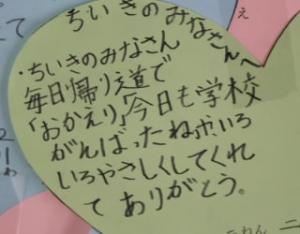 ちいきのみなさんへ
・ちいきのみなさん
毎日帰り道で
「おかえり」今日も学校
がんばったねといろ
いろやさしくしてくれ
て ありがとう。
え
て